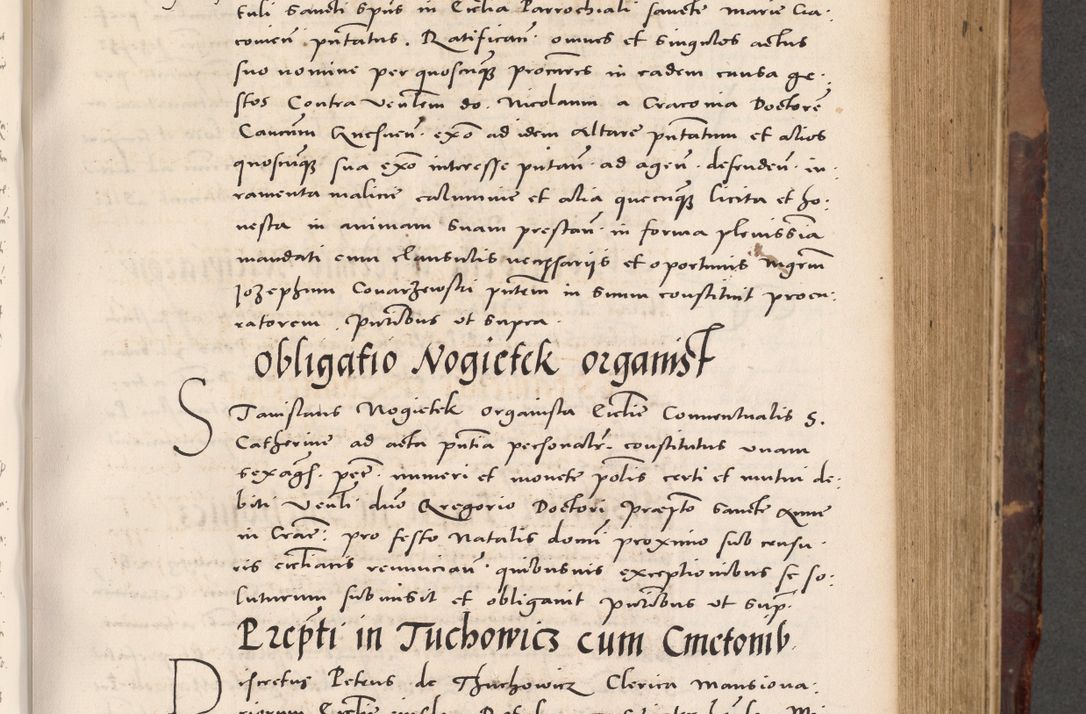 tuli Sancti Spūs in Ecclia Parrochiali sancte Marie Cra-
covien̄ pn̄tatus. Ratifican̄ omnes et singulos actus
suo nomine per quoscūq procurēs in eadem causa ge-
stos Contra Ven̄lem do. Nicolaum a Craconia Doctorē
Canc̄um Gnesnen̄ exō ad idem Altare pn̄tatum et alios
quoscūq sua exō interesse putan̄ ad agen̄ defenden̄ iu-
ramenta malicie calumnie et alia quecūq licita et ho-
nesta in animam suam prestan̄ in forma plenissīa
mandati cum clausulis necessariis et oportunis Mgrūm
Jozephum Covarzewski pn̄tem in Suum constituit procu-
ratorem. pn̄tibus ut supra
Obligatio Nogietek organist
Stanislaus Nogietek organista Ecclīe Conventualis S.
Catherine ad acta pn̄tia personalr̄ constitutus unam
sexagē. pec̄. numeri et monete polīs certi et mutui de-
biti Ven̄li dn̄o Gregorio Doctori Præpto sancte
in Crac̄. pro festo Natalis domī proximo sub censu-
ris eccliaris renuncian̄ quibusuis exceptionibus se so-
luturum submisit et obligauit pn̄tibus ut sup̄.
Recēpti in Tuchowicz cum Cmetonib.
Discretus Petrus de Thuchowicz Clerica Mansiona-